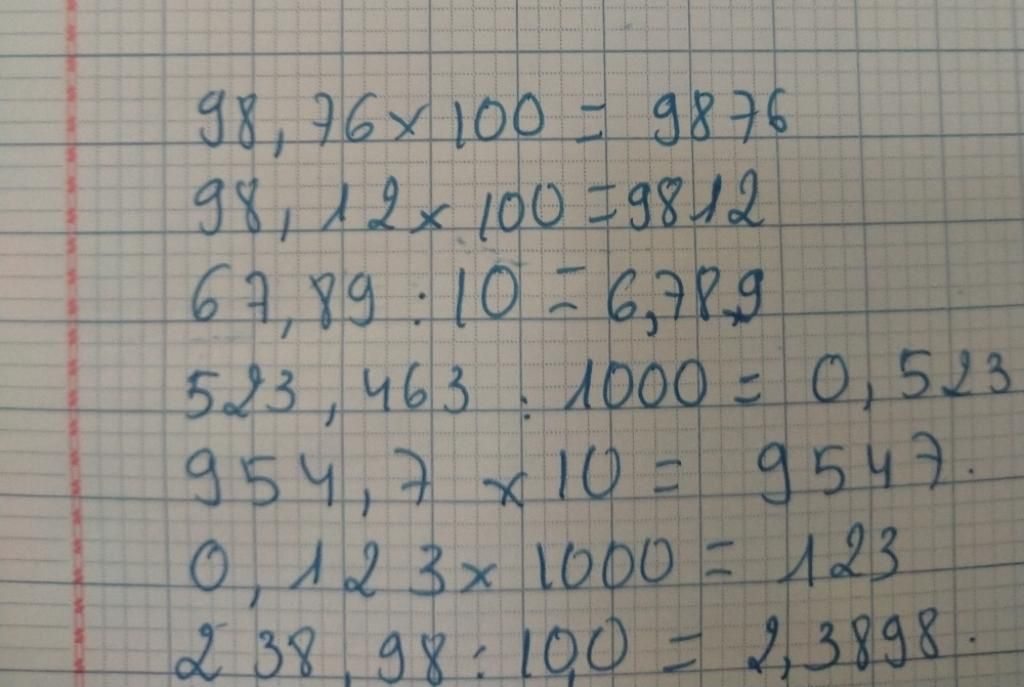 98,76 x 100 = 9876
98,12 x 100 = 9812
67,89 : 10 = 6,789
523,463 : 1000 = 0,523
954,7 x 10 = 9547.
0,123 x 1000 = 123
238,98 : 100 = 2,3898.